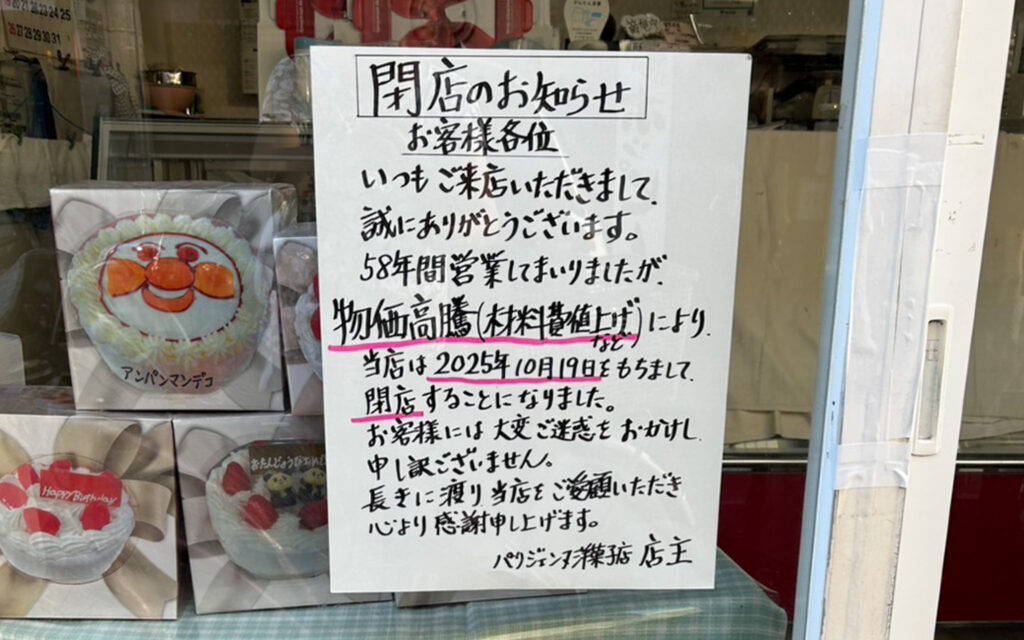 閉店のお知らせ
お客様各位
いつもご来店いただきまして、
誠にありがとうございます。
58年間営業してまいりましたが、
物価高騰(材料費値上げ
など)により、
当店は2025年10月19日をもちまして、
閉店することになりました。
お客様には大変ご迷惑をおかけし、
申し訳ございません。
長きに渡り当店をご愛顧いただき
心より感謝申し上げます。
パリジェンヌ洋菓子店 店主
アンパンマンデコ
Happy Birthday
おたんじょうびおめでとう